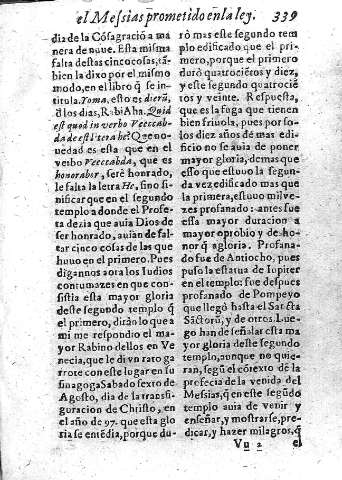 el Messias prometido en la ley. 339
dia de la Cõsagració a ma
nera de nuue. Esta misma
falta destas cinco cosas, tã-
bien la dixo por el mismo
modo, en el libro q̃ se in-
titula. Toma, esto es dierũ,
d̃ los dias, Rabi Aha. Quid
est quod in verbo Veeccab-
da deest litera he? Que no-
uedad es esta que en el
verbo Veeccabda, que es
honorabor, serè honrado,
le falta la letra He, sino si-
nificar que en el segundo
templo a donde el Profe-
ta dezia que auia Dios de
ser honrado, auian de fal-
tar cinco cosas de las que
huuo en el primero. Pues
digannos aora los Iudios
contumazes en que con-
sistia esta mayor gloria
deste segundo templo q̃
el primero, diràn lo que a
mi me respondio el ma-
yor Rabino dellos en Ve
necia, que le di vn rato ga
rrote con este lugar en su
sinagoga Sabado sexto de
Agosto, dia de la transfi-
guracion de Christo, en
el año de 97. que esta glo
ria se entẽdia, porque du-
rò mas este segundo tem
plo edificado que el pri-
mero, porque el primero
durò quatrociẽtos y diez,
y este segundo quatrociẽ
tos y veinte. Respuesta,
que es la fuga que tienen
bien friuola, pues por so-
los diez años dè mas edi-
ficio no se auia de poner
mayor gloria, demas que
esso que estuuo la segun-
da vez edificado mas que
la primera, estuuo mil ve-
zes profanado: antes fue
essa mayor duracion a
mayor oprobio y de ho-
nor q̃ a gloria. Profana-
do fue de Antiocho, pues
puso la estatua de Iupiter
en el templo: fue despues
profanado de Pompeyo
que llegò hasta el Sancta
Sãctorũ, y de otros. Lue-
go han de señalar esta ma
yor gloria deste segundo
templo, aunque no quie-
ran, segũ el cõtexto de la
profecia de la venida del
Messias, q̃ en este segũdo
templo auia de venir y
enseñar, y mostrarse, pre-
dicar, y hazer milagros, q̃
Vu 2 el